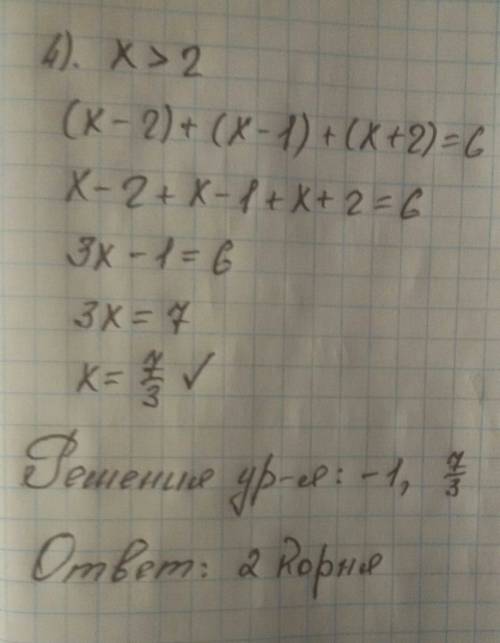 4). x > 2
(x - 2) + (x - 1) + (x + 2) = 6
x - 2 + x - 1 + x + 2 = 6
3x - 1 = 6
3x = 7
x = 7/3 ✓
Решения ур-я: -1, 7/3
Ответ: 2 корня